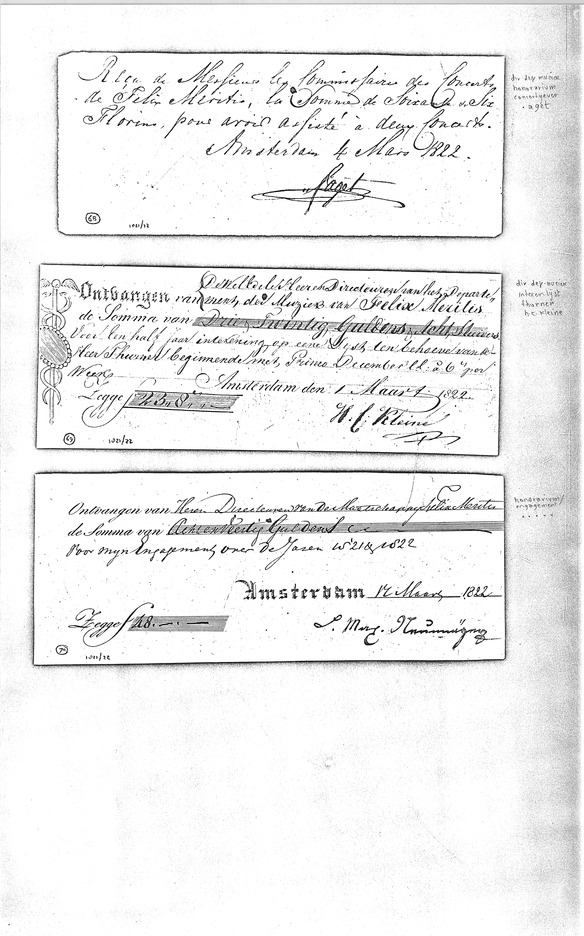 Reçu de Messieurs les Commissaires des Concerts
de Felix Meritis, la Somme de Soixante & Six
Florins, pour avoir assisté à deux Concerts.
Amsterdam 4 Mars 1822.
Paget
68
1021/22
div dep muziek
honorarium
concertgever
Ontvangen van de WelEdele Heeren Directeuren van het Departe-
ment der Muziek van Felix Meritis
de Somma van Drie & Twintig Guldens & Acht Stuivers
Voor een half jaar intekening op eene Lyst ten behoeve van de
Heer Thurner beginnende met Primo December à 6 per
Week
Amsterdam den 1 Maart 1822
Zegge ƒ 23 " 8 "
H. C. Kleine
69
1021/22
div dep muziek
inteekenlyst
thurner
h c kleine
Ontvangen van Heren Directeuren van de Maatschappy Felix Meritis
de Somma van Guldens
Voor myn Engagement over de Jaren 1821 & 1822
Amsterdam 12 Maart 1822
Zegge ƒ 28.
70
1021/22
honorarium/
engagement